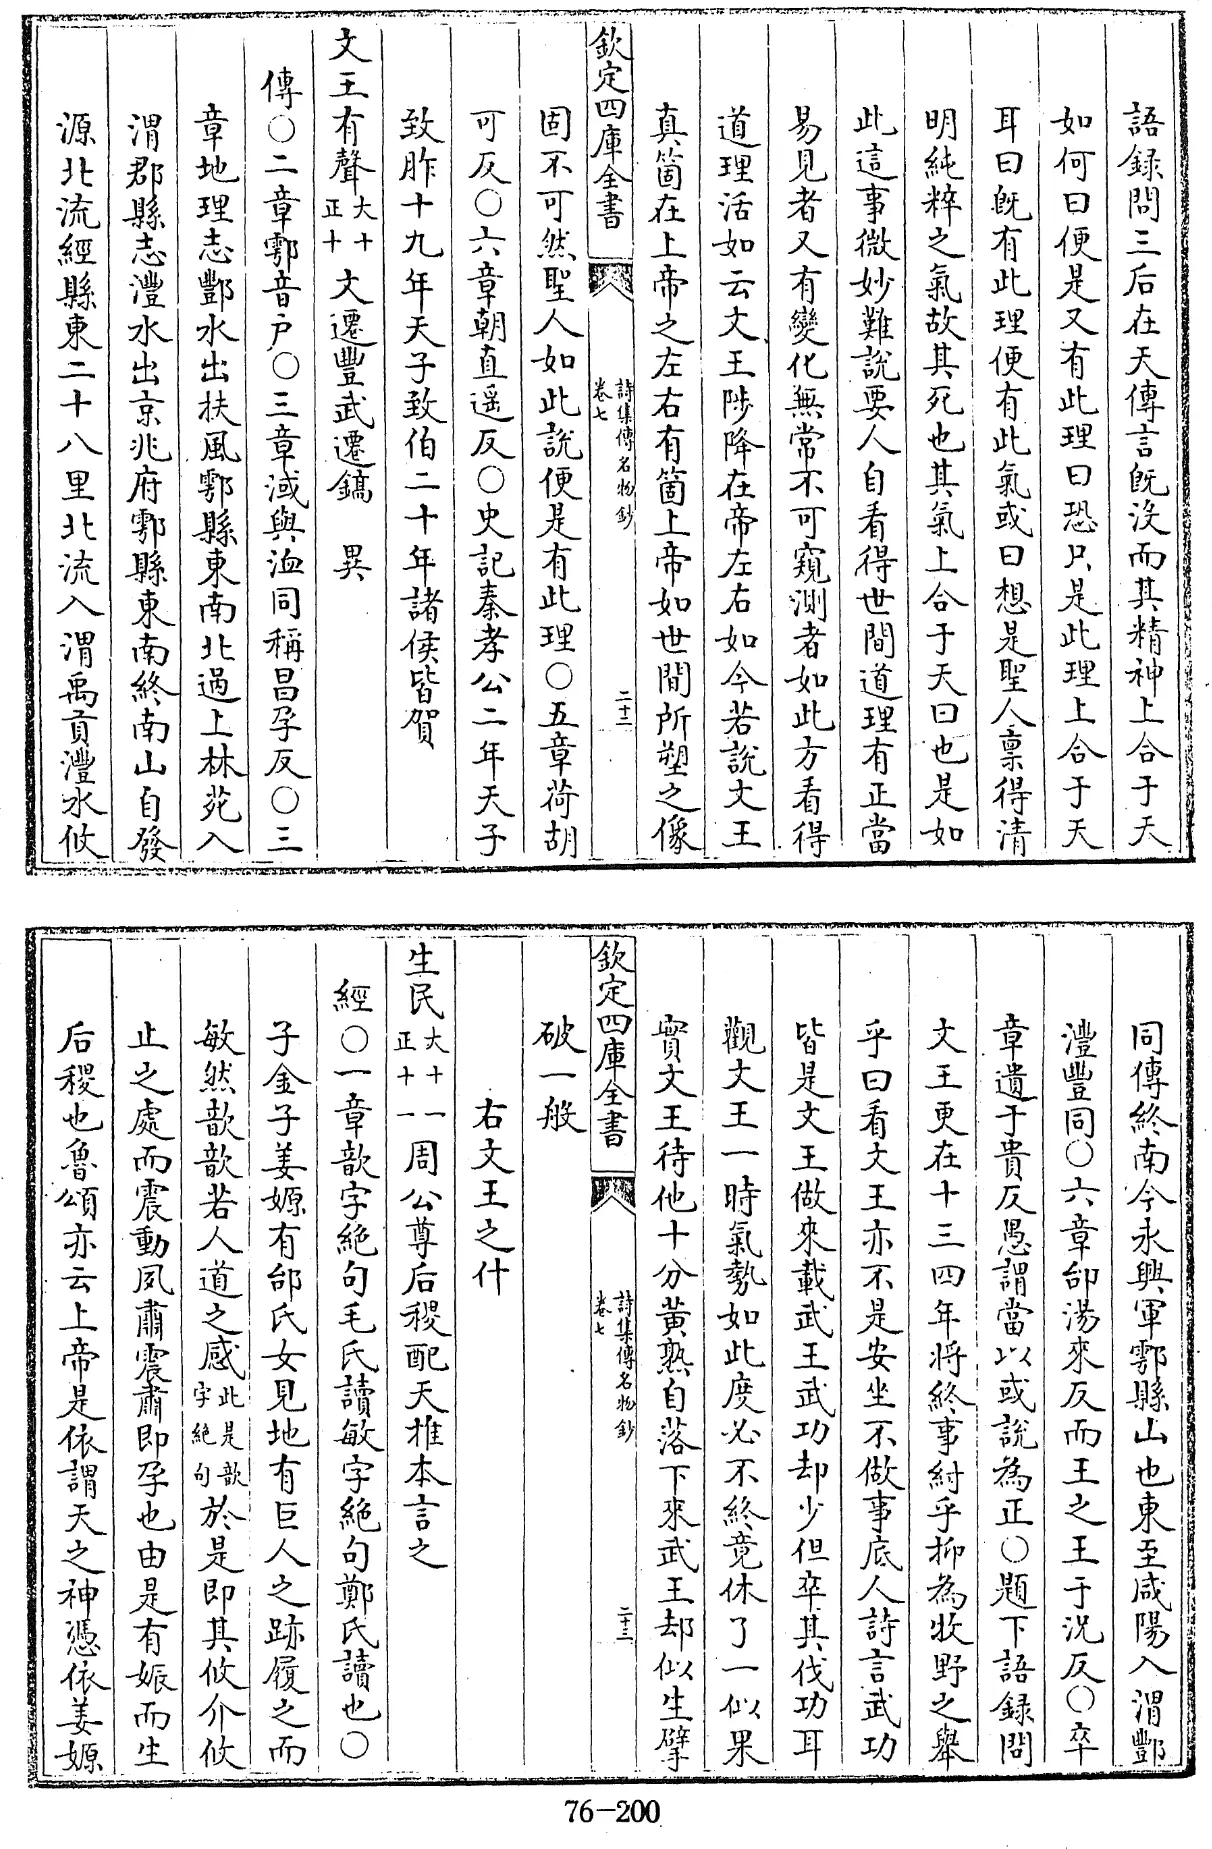 語録問三后在天傳言既沒而其精神上合于天
如何曰便是又有此理曰恐只是此理上合于天
耳曰既有此理便有此氣或曰想是聖人稟得清
明純粹之氣故其死也其氣上合于天曰也是如
此這事微妙難說要人自看得世間道理有正當
易見者又有變化無常不可窺測者如此方看得
道理活如云文王陟降在帝左右如今若說文王
真箇在上帝之左右有箇上帝如世間所塑之像
欽定四庫全書 詩集傳名物鈔 卷七 二十二
固不可然聖人如此說便是有此理○五章荷胡
可反○六章朝直遥反○史記秦孝公二年天子
致胙十九年天子致伯二十年諸侯皆賀
文王有聲大十正十文遷豐武遷鎬 異
傳○二章鄠音户○三章淢與洫同稱昌孕反○三
章地理志酆水出扶風鄠縣東南北過上林苑入
渭郡縣志灃水出京兆府鄠縣東南終南山自發
源北流經縣東二十八里北流入渭禹貢灃水攸
同傳終南今永興軍鄠縣山也東至咸陽入渭酆
灃豐同○六章邰湯來反而王之王于況反○卒
章遺于貴反愚謂當以或說為正○題下語録問
文王更在十三四年將終事紂乎抑為牧野之舉
乎曰看文王亦不是安坐不做事底人詩言武功
皆是文王做來載武王武功却少但卒其伐功耳
觀文王一時氣勢如此度必不終竟休了一似果
實文王待他十分黃熟自落下來武王却似生擘
欽定四庫全書 詩集傳名物鈔 卷七 二十三
破一般
右文王之什
生民大十一正十一周公尊后稷配天推本言之
經○一章歆字絶句毛氏讀敏字絶句鄭氏讀也○
子金子姜嫄有邰氏女見地有巨人之跡履之而
敏然歆歆若人道之感此是歆字絶句於是即其攸介攸
止之處而震動夙肅震肅即孕也由是有娠而生
后稷也魯頌亦云上帝是依謂天之神憑依姜嫄
76-200